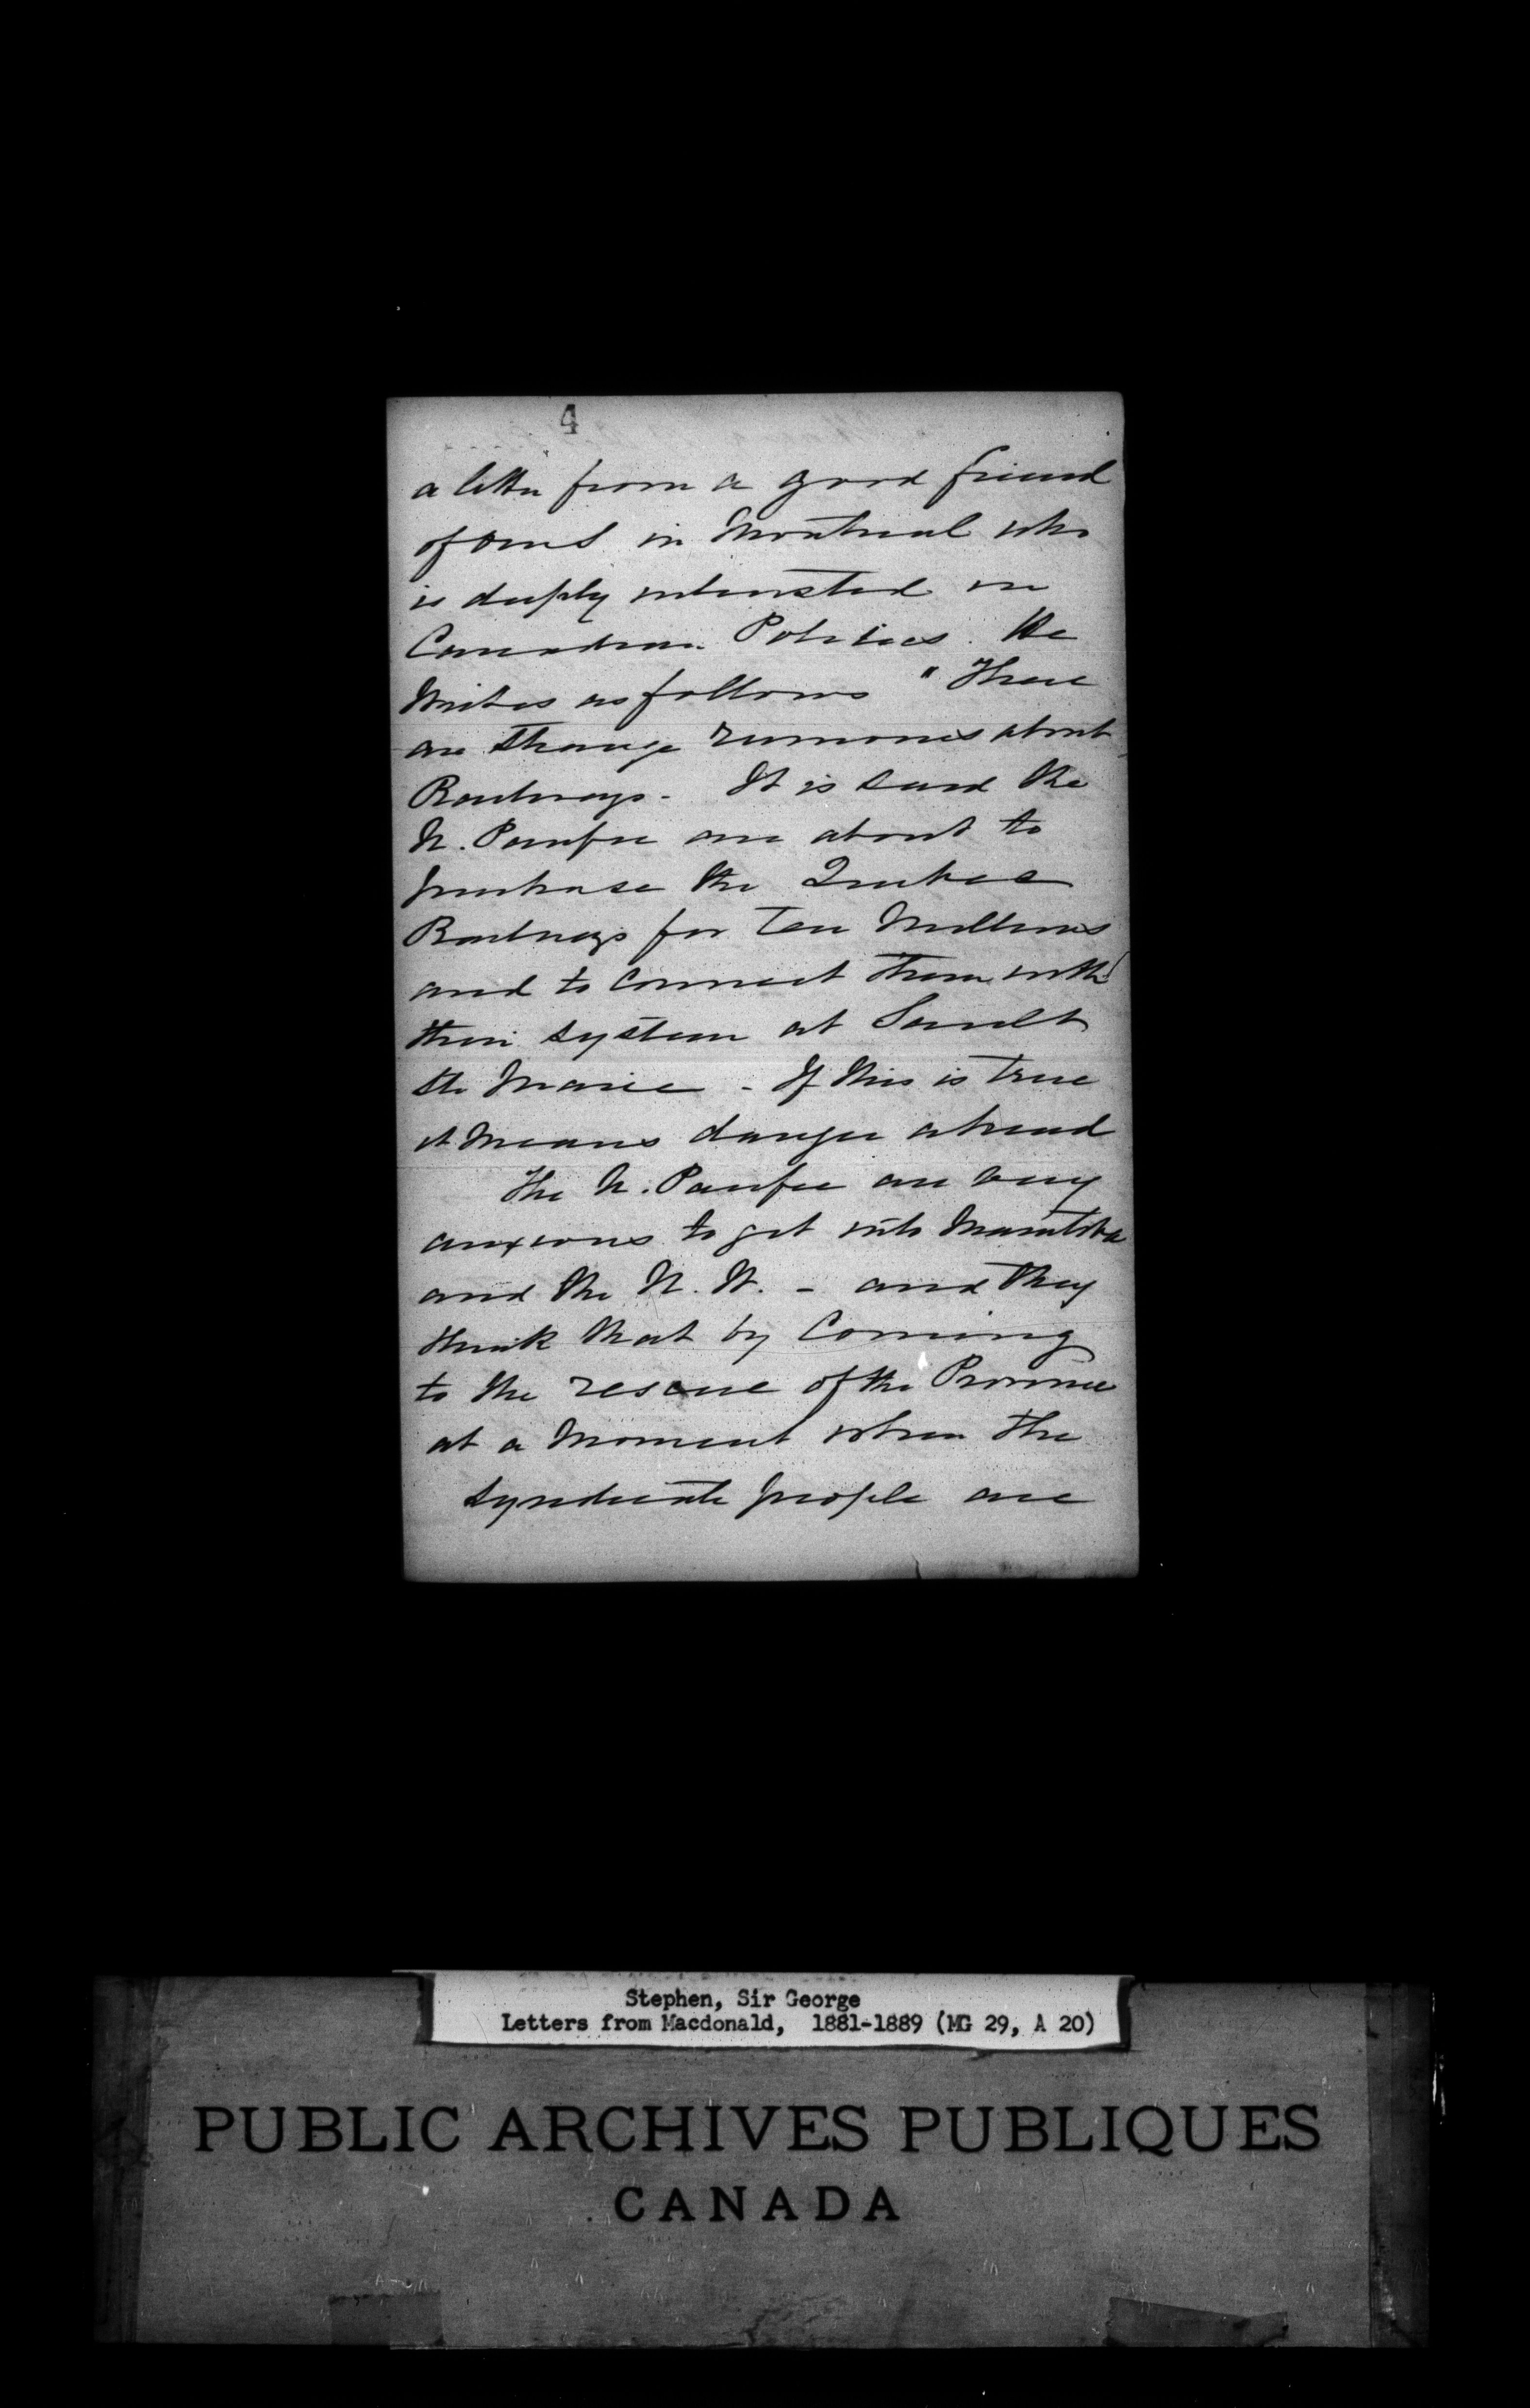 4
a letter from a good friend
of ours in Montreal who
is deeply interested in
Canadian Politics. He
writes as follows "There
are strange rumours about
Railways - It is said the
N. Pacific are about to
purchase the Quebec
Railways for Ten Millions
and to connect them with
their system at Sault
Ste Marie - If this is true
it means danger ahead
The N. Pacific are very
anxious to get into Manitoba
and the N. W. - and they
think that by Coming
to the rescue of the Province
at a moment when the
Syndicate people are
Stephen, Sir George
Letters from Macdonald, 1881-1889 (MG 29, A 20)
PUBLIC ARCHIVES PUBLIQUES
CANADA